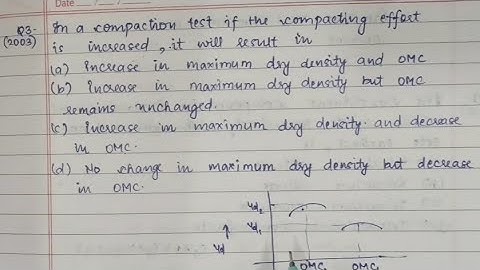 Date ___/___/___
Q3- In a compaction test if the compacting effort
(2003) is increased, it will result in
(a) Increase in maximum dry density and OMC
(b) Increase in maximum dry density but OMC
remains unchanged.
(c) Increase in maximum dry density and decrease
in OMC.
(d) No change in maximum dry density but decrease
in OMC.
γd2
γd1
γd
OMC OMC